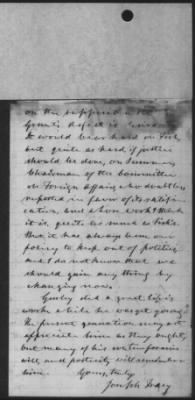 on the supposed
Grant's defect is
It would bear hard on Fish,
but quite as hard if justice
should be done, on Sumner,
Chairman of the Committee
on Foreign Affairs who doubtless
reported in favor of its ratifi-
cation, and whose work I think
it is, quite as much as Fish's.
But it has always been our
policy to keep out of politics
and I do not know that we
should gain anything by
changing now.
Gurley did a great life's
work while he was going; &
the present generation may not
appreciate him as they ought,
but many of his
will, and posterity will remember
him. Yours truly,
Joseph Tracy